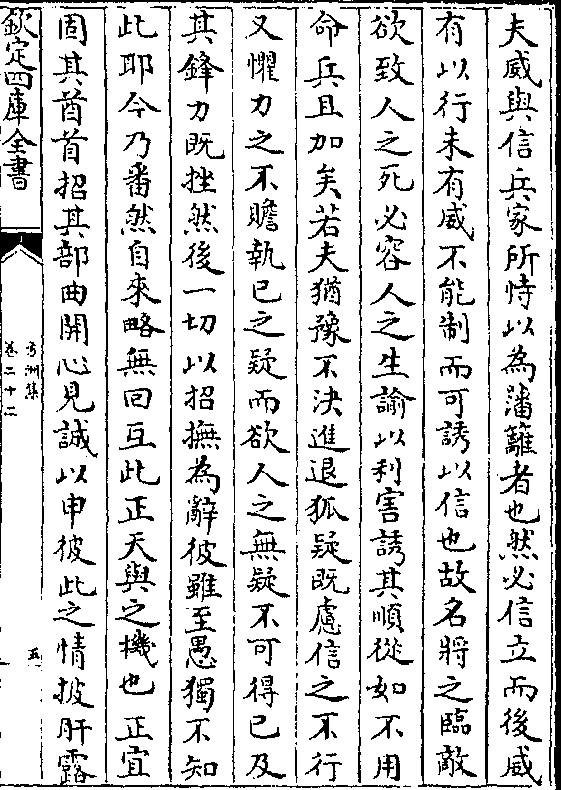 夫威與信兵家所恃以為藩籬者也然必信立而後威
有以行未有威不能制而可誘以信也故名將之臨敵
欲致人之死必容人之生諭以利害誘其順從如不用
命兵且加矣若夫猶豫不決進退狐疑既慮信之不行
又懼力之不贍執已之疑而欲人之無疑不可得已及
其鋒力既挫然後一切以招撫為辭彼雖至愚獨不知
此耶今乃番然自來略無回互此正天與之機也正宜
固其酋首招其部曲開心見誠以申彼此之情披肝露
欽定四庫全書
卷二十二
五